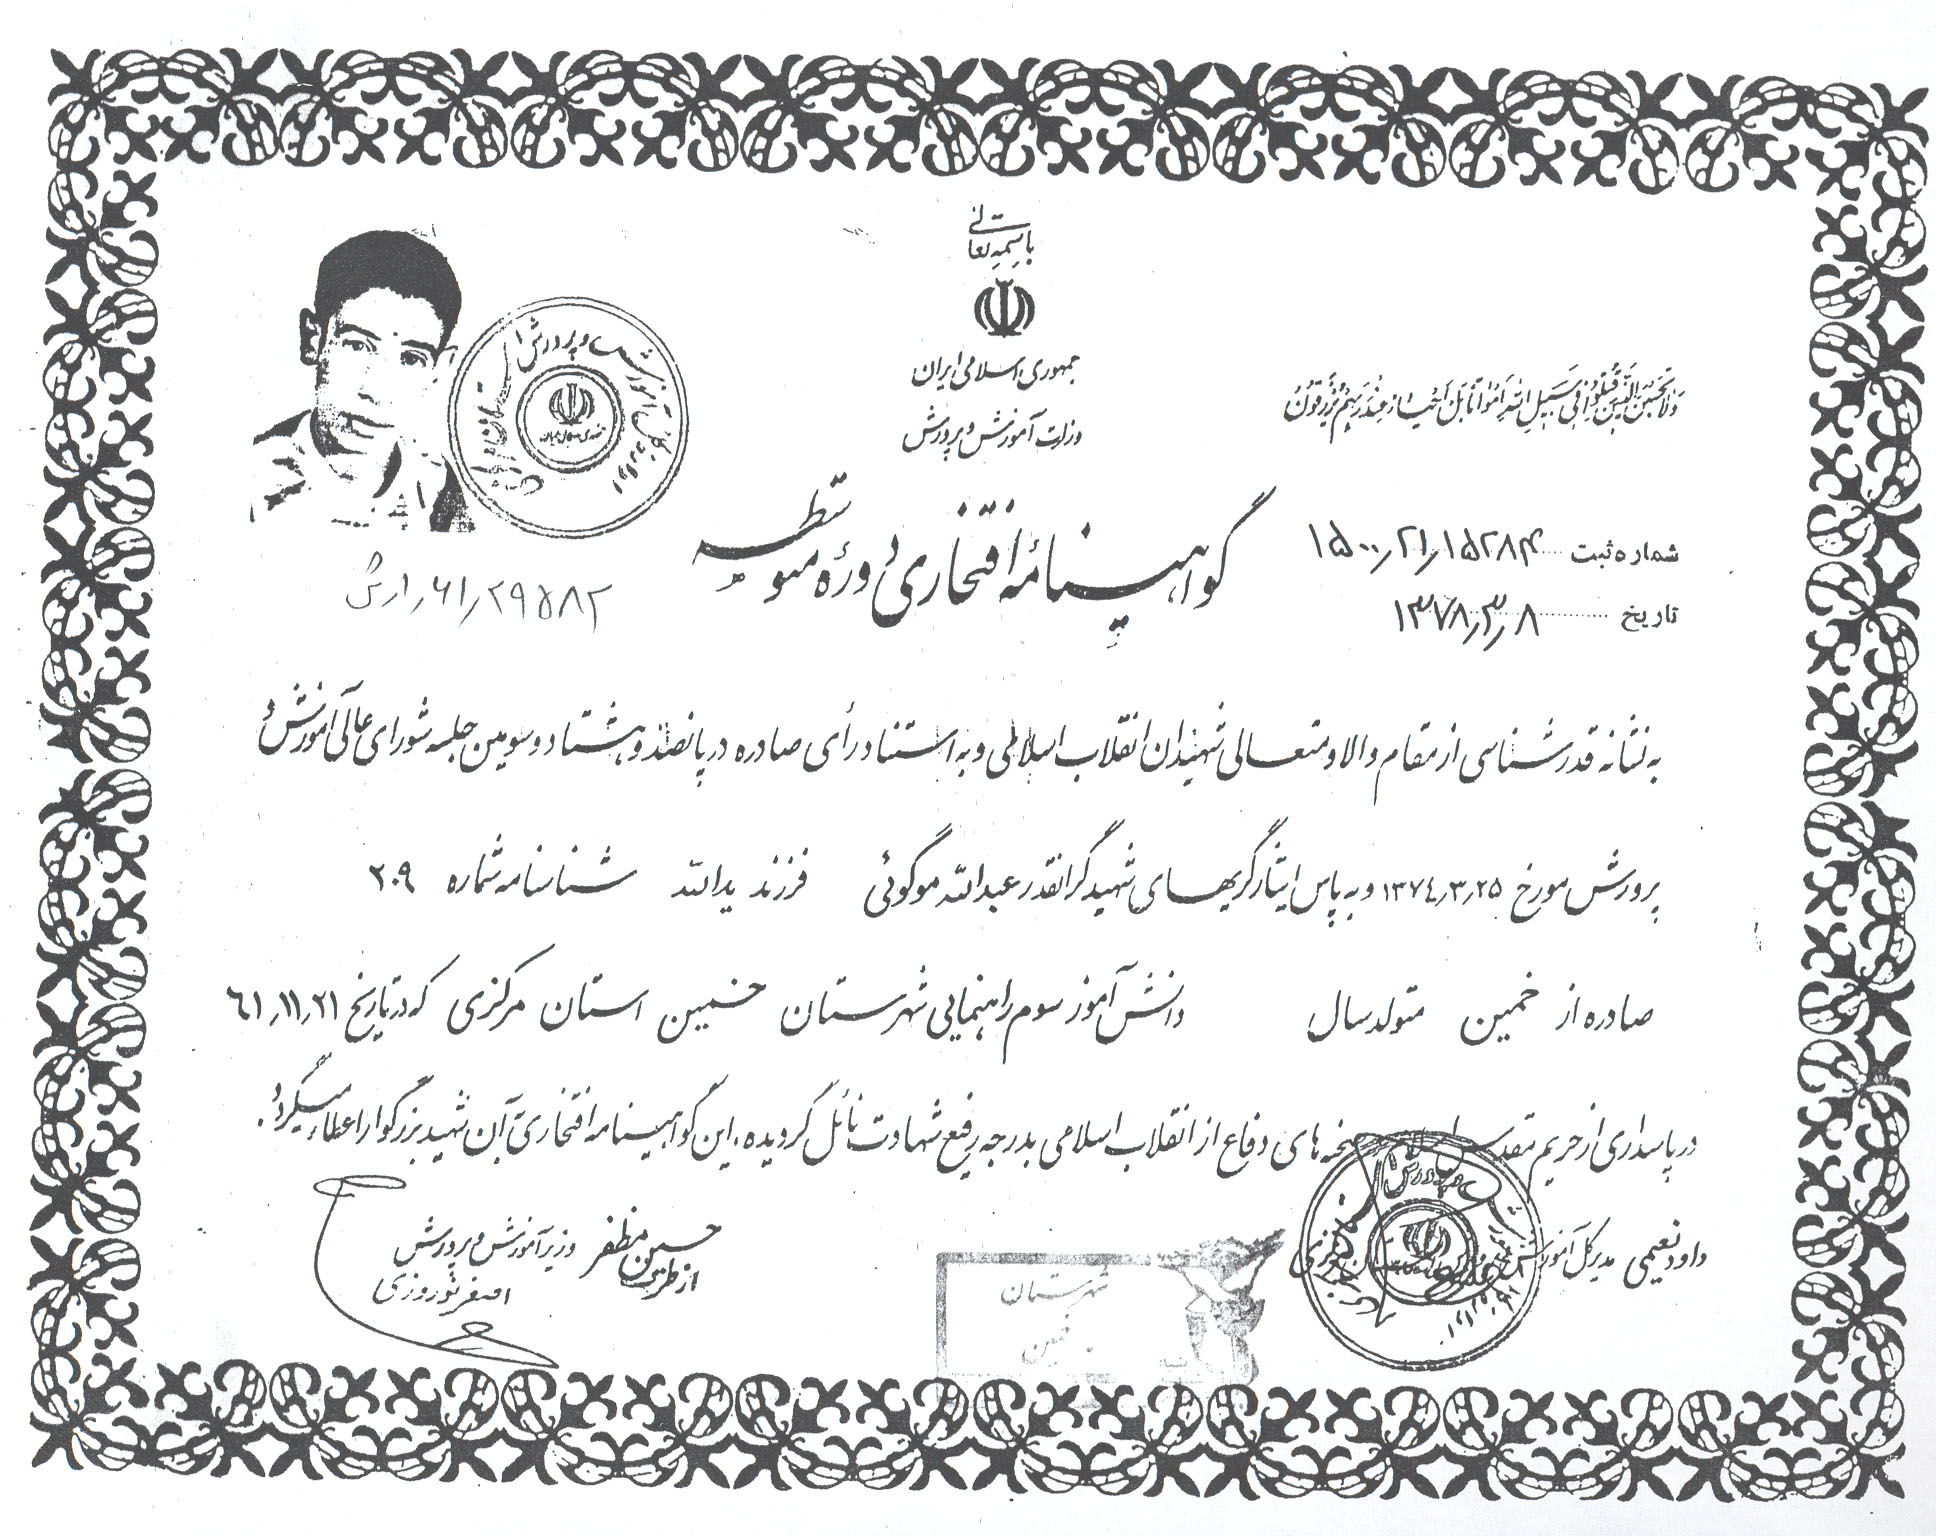 باسمه تعالی
جمهوری اسلامی ایران
وزارت آموزش و پرورش
وَلا تَحسَبَنَّ الَّذینَ قُتِلُوا فی سَبیلِ اللهِ اَمواتاً بَل اَحیاءٌ عِندَ رَبِّهِم یُرزَقُونَ
گواهینامهٔ افتخاری دورهٔ متوسطه
شماره ثبت ۱۵۰۰٫۲۱٫۱۵۲۸۴
تاریخ ۱۳۷۸٫۳٫۸
۶۱٫۲۹۵۸۲
به نشانه قدرشناسی از مقام والا و متعالی شهیدان انقلاب اسلامی و به استناد رأی صادره در پانصد و هشتاد و سومین جلسه شورای عالی آموزش و
پرورش مورخ ۱۳۷٤٫۳٫۲۵ و به پاس ایثارگریهای شهید گرانقدر عبدالله موگوئی فرزند یدالله شناسنامه شماره ۲۰۹
صادره از خمین متولد سال دانش آموز سوم راهنمایی شهرستان خمین استان مرکزی که در تاریخ ۶۱٫۱۱٫۲۱
در پاسداری از حریم مقدس اسلام و صحنه های دفاع از انقلاب اسلامی بدرجه رفیع شهادت نائل گردیده، این گواهینامه افتخاری به آن شهید بزرگوار اعطاء میگردد.
داود نعیمی مدیرکل آموزش و پرورش استان مرکزی
حسین مظفر وزیر آموزش و پرورش
از طرف اصغر نوروزی
شهرستان
خمین